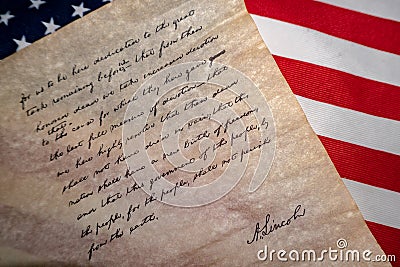 for us to be here dedicated to the great
task remaining before us that from these
honored dead we take increased devotion
to that cause for which they here gave
the last full measure of devotion that
we here highly resolve that these dead
shall not have died in vain; that the
nation shall have a new birth of freedom,
and that the government of the people, by
the people, for the people, shall not perish
from the earth.
A. Lincoln
dreamstime